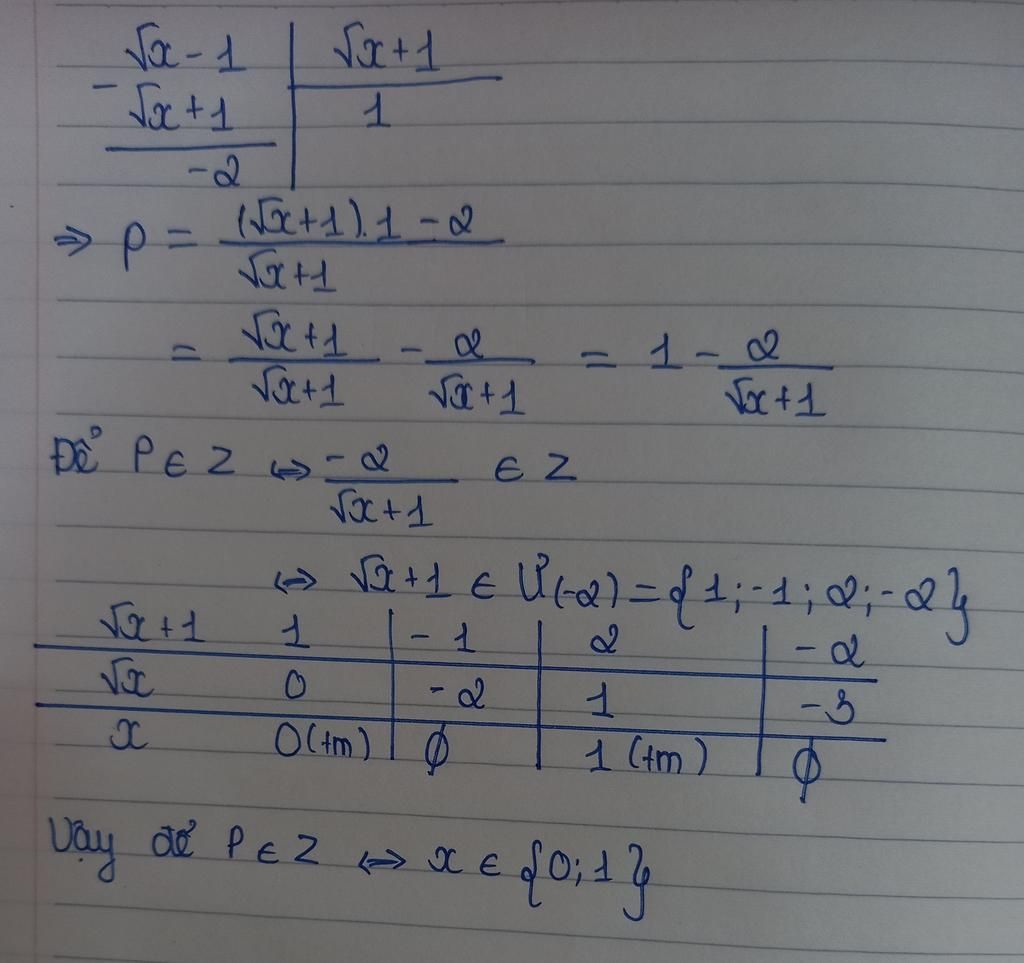 √x - 1 | √x + 1
- √x + 1 | 1
-2
⇒ P = (√x+1).1 - 2 / √x+1
= √x+1 / √x+1 - 2 / √x+1 = 1 - 2 / √x+1
Để P ∈ Z ⇔ -2 / √x+1 ∈ Z
⇔ √x+1 ∈ Ư(-2) = {1; -1; 2; -2}
√x+1 1 | -1 | 2 | -2
√x 0 | -2 | 1 | -3
x 0 (tm) | ∅ | 1 (tm) | ∅
Vậy để P ∈ Z ⇔ x ∈ {0; 1}